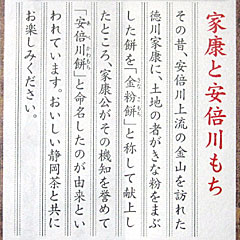 家康と安倍川もち
その昔、安倍川上流の金山を訪れた
徳川家康に、土地の者がきな粉をまぶ
した餅を「金粉餅」と称して献上し
たところ、家康公がその機知を誉めて
「安倍川餅」と命名したのが由来とい
われています。おいしい静岡茶と共に
お楽しみください。